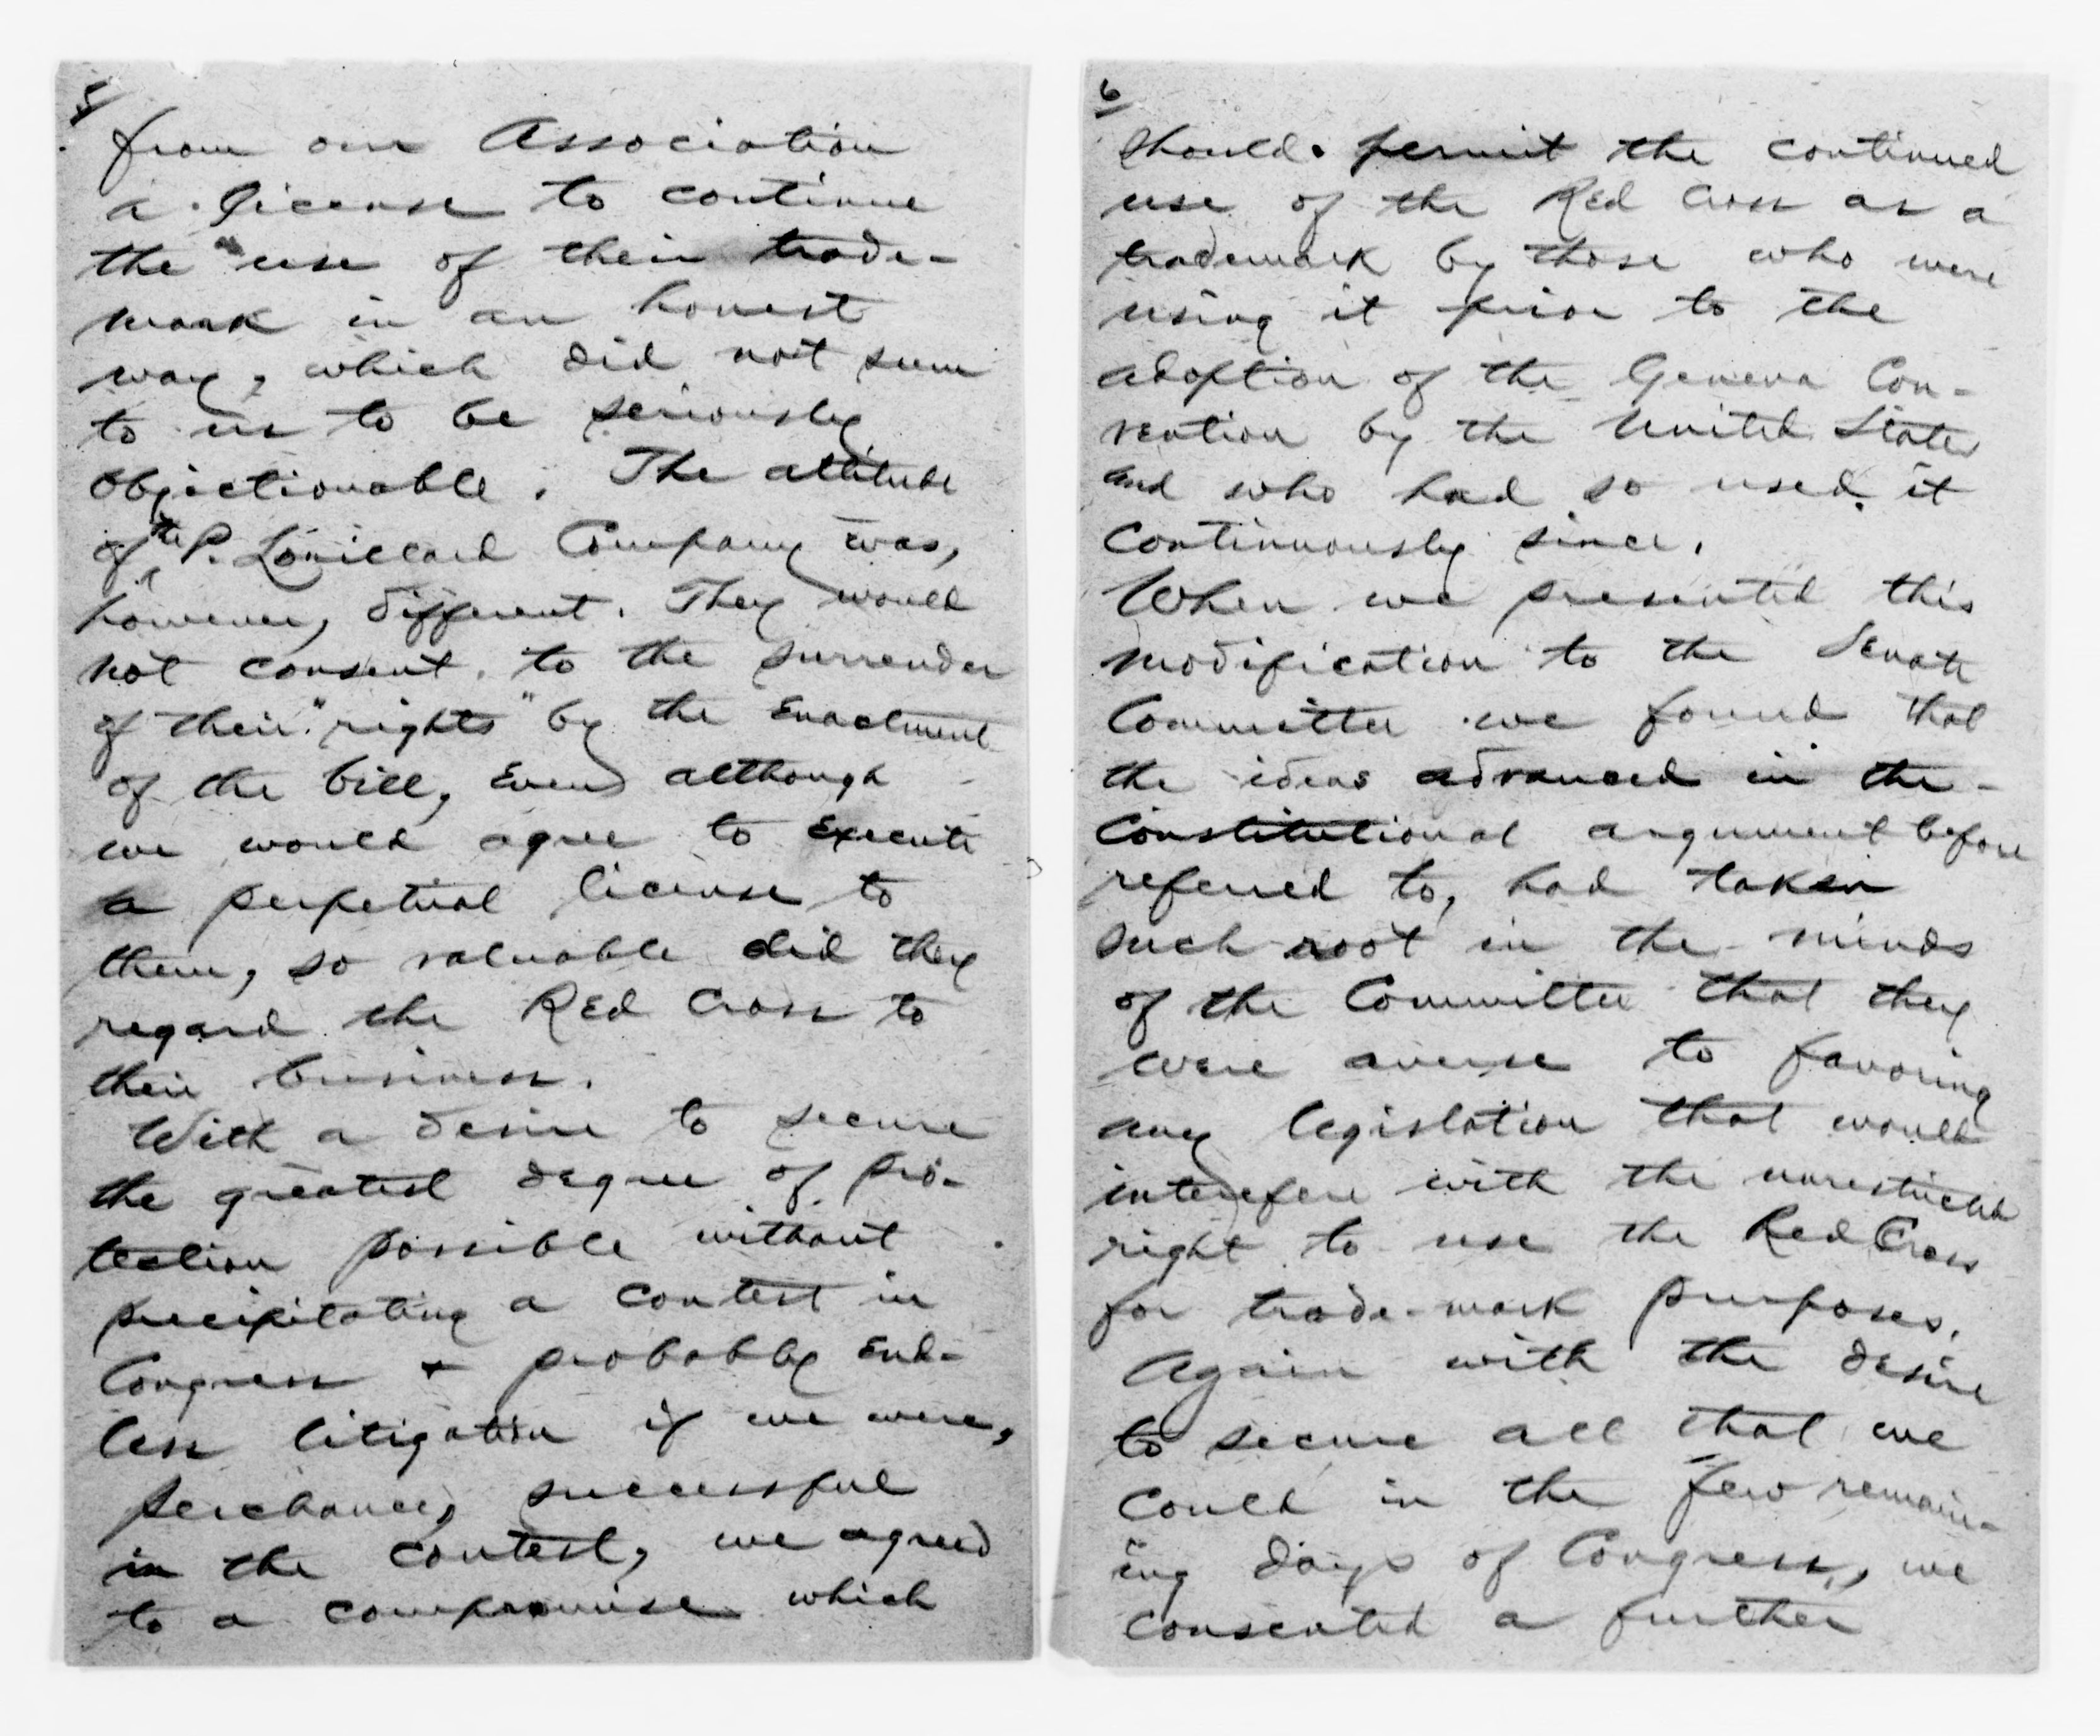 5
from our Association
a license to continue
the use of their trade-
mark in an honest
way, which did not seem
to us to be seriously
objectionable. The attitude
of the P. Lorillard Company was,
however, different. They would
not consent to the surrender
of their "rights" by the enactment
of the bill, even although
we would agree to execute
a perpetual license to
them, so valuable did they
regard the Red Cross to
their business.
With a desire to secure
the greatest degree of pro-
tection possible without
precipitating a contest in
Congress + probably end-
less litigation if we were,
perchance, successful
in the contest, we agreed
to a compromise which
6
should permit the continued
use of the Red Cross as a
trademark by those who were
using it prior to the
adoption of the Geneva Con-
vention by the United States
and who had so used it
continuously since.
When we presented this
modification to the Senate
Committee we found that
the ideas advanced in the
Constitutional argument before
referred to, had taken
such root in the minds
of the Committee that they
were averse to favoring
any legislation that would
interefere with the unrestricted
right to use the Red Cross
for trade-mark purposes.
Again with the desire
to secure all that we
could in the few remain-
ing days of Congress, we
consented a further